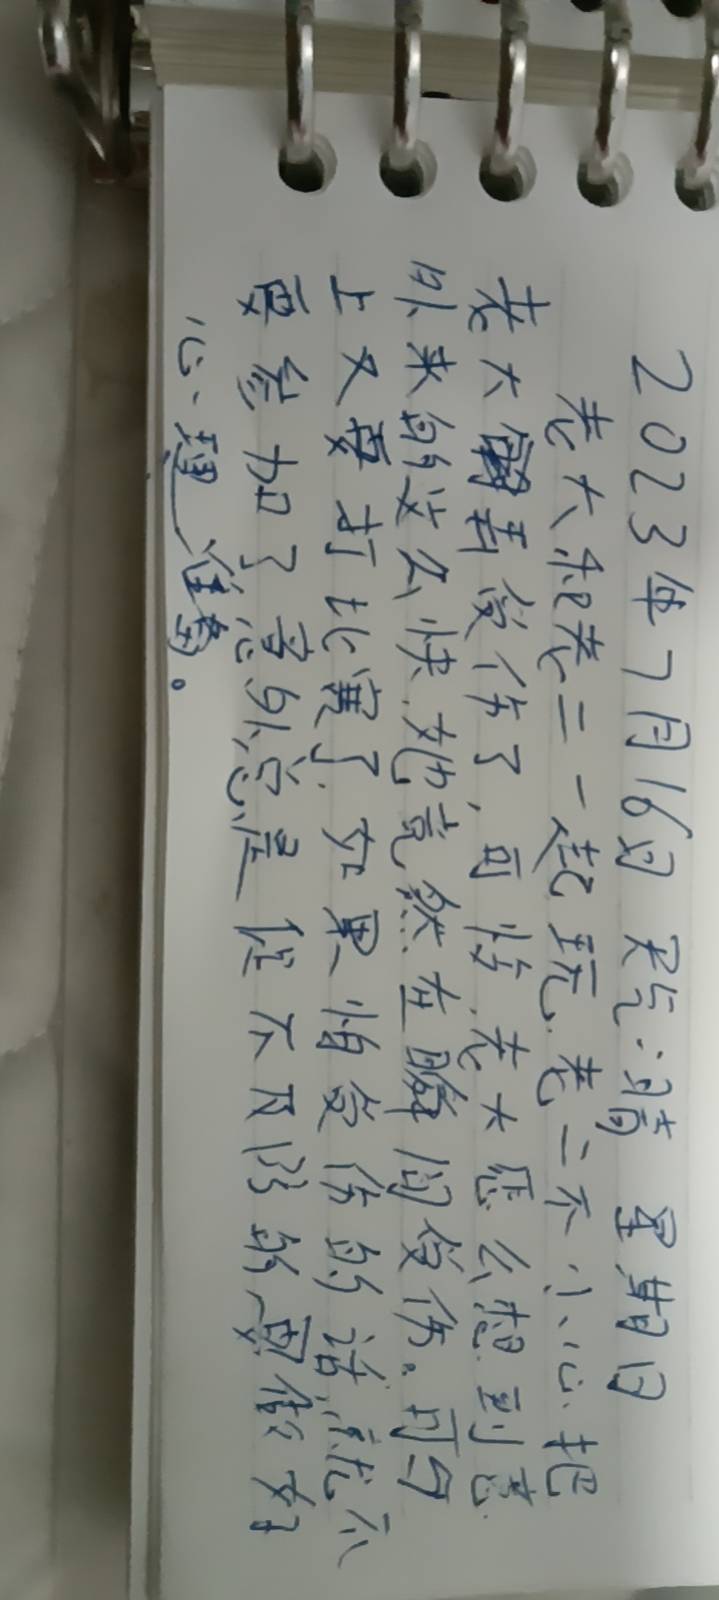 2023年7月16日 天气:晴 星期日
老大和老二一起玩,老二不小心把
老大弄受伤了,可惜,老大怎么想到意
外来的这么快,她竟然在瞬间受伤。可今
上又要打比赛了,如果怕受伤的话,就不
要参加了意外总是促不及防的要做好
心理准备。